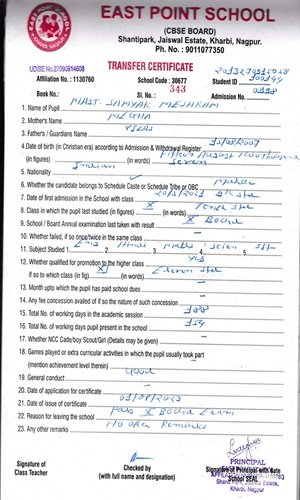 EAST POINT SCHOOL
(CBSE BOARD)
Shantipark, Jaiswal Estate, Kharbi, Nagpur.
Ph. No. : 9011077350
UDISE No.27090914608
TRANSFER CERTIFICATE
STUDENT ID
Affiliation No. : 1130760 School Code : 30677
Book No.: Sl. No.: 343 Admission No.
1. Name of Pupil MAST. SAMYAK MESHRAM
2. Mother's Name MEGHA
3. Fathers / Guardians Name VILAS
4. Date of birth (in Christian era) according to Admission & Withdrawal Register
(in figures) 15/08/2007 (in words) Fifteen August Two thousand Seven
5. Nationality Indian
6. Whether the candidate belongs to Schedule Caste or Schedule Tribe or OBC Mahar
7. Date of first admission in the School with class
8. Class in which the pupil last studied (in figures) X (in words) Tenth Std
9. School / Board Annual examination last taken with result X Board
10. Whether failed, if so once/twice in the same class -
11. Subject Studied 1. Eng 2. Hindi 3. Maths 4. Scien 5. SST
12. Whether qualified for promotion to the higher class Yes
if so to which class (in fig) XI (in words) Eleven Std
13. Month upto which the pupil has paid school dues -
14. Any fee concession availed of if so the nature of such concession -
15. Total No. of working days in the academic session 188
16. Total No. of working days pupil present in the school 154
17. Whether NCC Cade/boy Scout/Girl (Details may be given) -
18. Games played or extra curricular activities in which the pupil usually took part
(mention achievement level therein) -
19. General conduct Good
20. Date of application for certificate -
21. Date of issue of certificate
22. Reason for leaving the school Pass X Board Exam
23. Any other remarks No Other Remarks
Signature of
Class Teacher
Checked by
(with full name and designation)
PRINCIPAL
Signature of Principal with date
School SEAL
Kharbi, Nagpur.